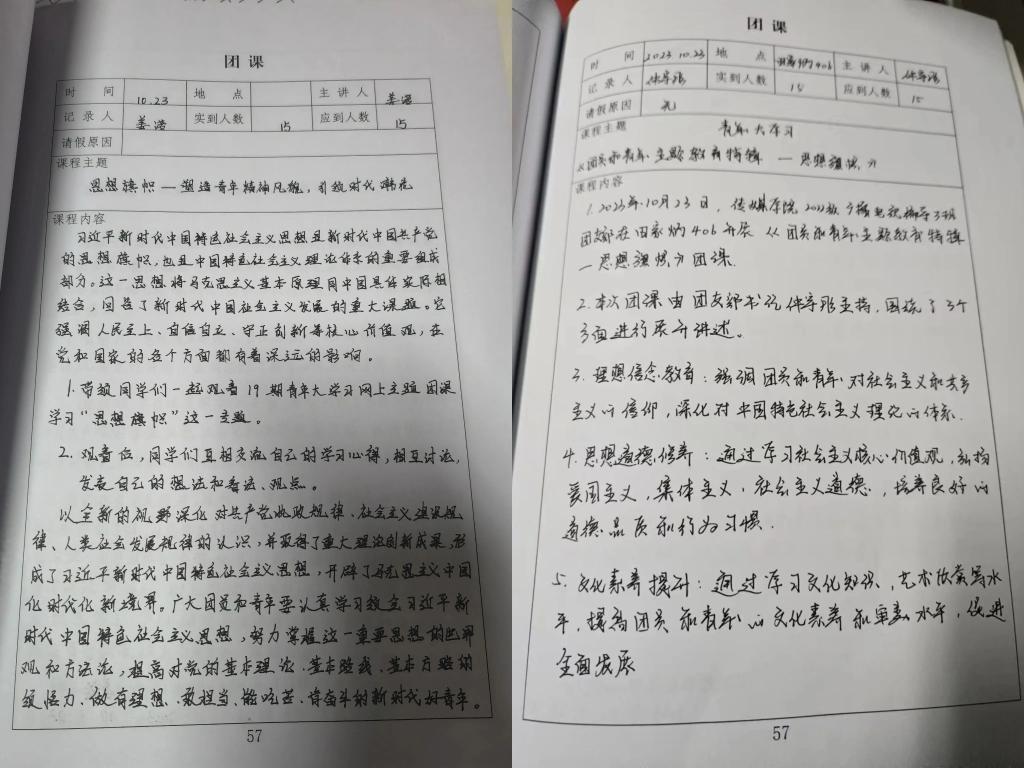 团 课
时 间 10.23 地 点 主 讲 人 姜浩
记 录 人 姜浩 实到人数 15 应到人数 15
请假原因
课程主题
思想旗帜—塑造青年精神风貌，引领时代潮流
课程内容
习近平新时代中国特色社会主义思想是新时代中国共产党
的思想旗帜，也是中国特色社会主义理论体系的重要组成
部分。这一思想将马克思主义基本原理同中国具体实际相
结合，回答了新时代中国社会主义发展的重大课题。它
强调人民至上、自信自立、守正创新等核心价值观，在
党和国家的各个方面都有着深远的影响。
1. 带领同学们一起观看19期青年大学习网上主题团课
学习“思想旗帜”这一主题。
2. 观看后，同学们互相交流自己的学习心得，相互讨论，
发表自己的想法和看法、观点。
以全新的视野深化对共产党执政规律、社会主义建设规
律、人类社会发展规律的认识，并取得了重大理论创新成果，形
成了习近平新时代中国特色社会主义思想，开辟了马克思主义中国
化时代化新境界。广大团员和青年要认真学习领会习近平新
时代中国特色社会主义思想，努力掌握这一重要思想的世界
观和方法论，提高对党的基本理论、基本路线、基本方略的
领悟力、做有理想、敢担当、能吃苦、肯奋斗的新时代好青年。
57
团 课
时 间 2023.10.23 地 点 田家炳406 主 讲 人
记 录 人 实到人数 15 应到人数 15
请假原因 无
课程主题 青年大学习
《团员和青年主题教育特辑—思想旗帜》
课程内容
1. 2023年10月23日，传媒学院2022级广播电视编导3班
团支部在田家炳406开展《团员和青年主题教育特辑
—思想旗帜》团课.
2. 本次团课由团支部书记主持，围绕了3个
方面进行展开讲述。
3. 理想信念教育：强调团员和青年对社会主义和共产
主义的信仰，深化对中国特色社会主义理论的体系.
4. 思想道德修养：通过学习社会主义核心价值观，弘扬
爱国主义，集体主义，社会主义道德，培养良好的
道德品质和行为习惯.
5. 文化素养提升：通过学习文化知识、艺术欣赏等水
平，提高团员和青年的文化素养和审美水平，促进
全面发展
57